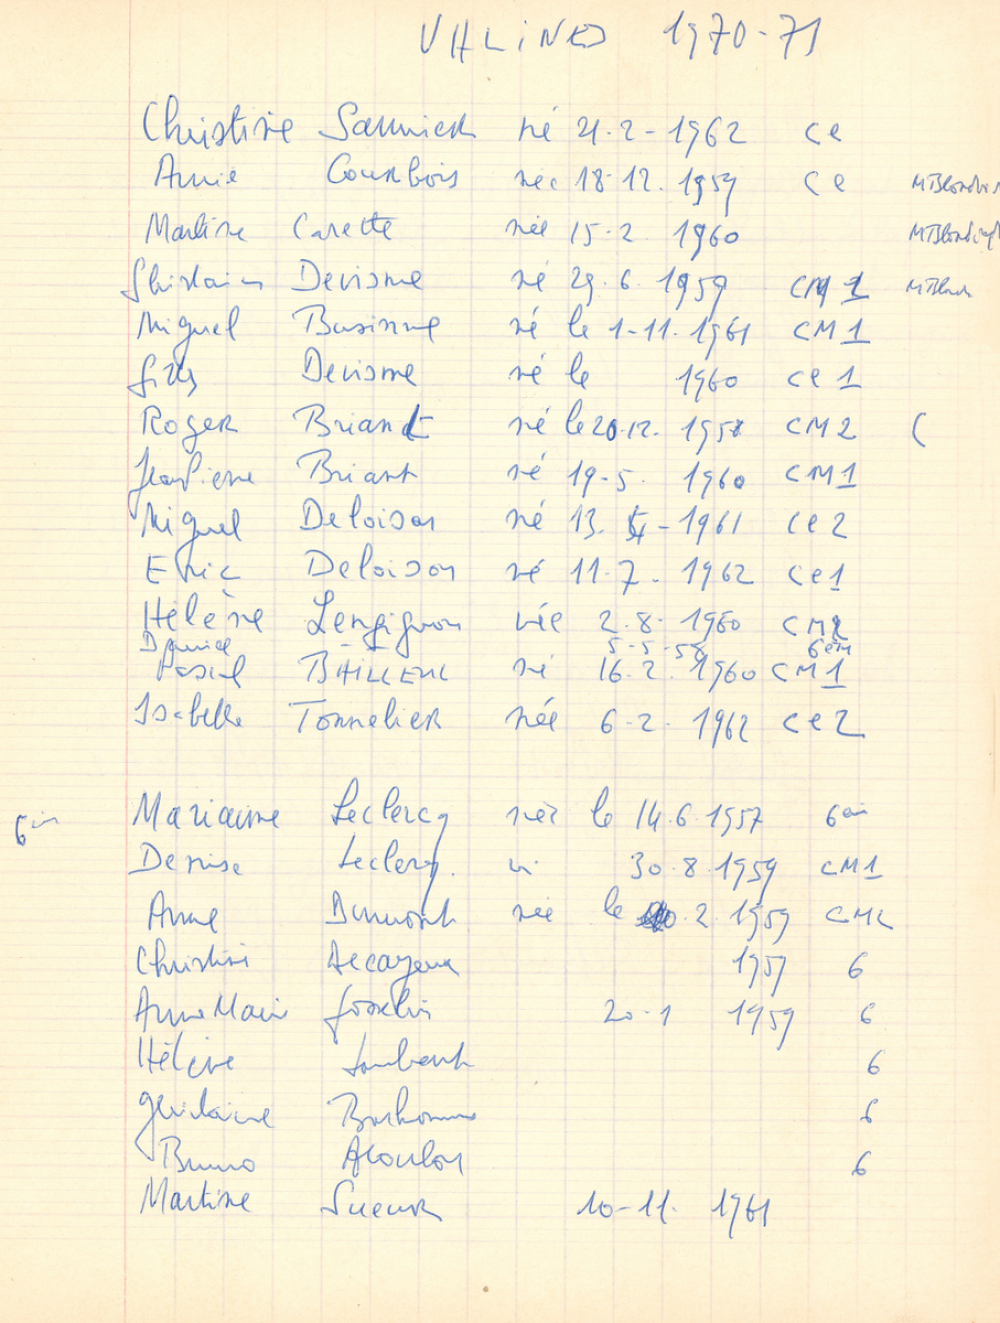 VALINES 1970-71
Christine Saunier né 21-2-1962 Ce
Annie Courbois née 18-12. 1959 Ce MTBlondin
Martine Carette née 15-2 1960
Ghislain Devisme né 29.6.1959 CM1
Miguel Businne né le 1-11-1961 CM1
Gilles Devisme né le 1960 Ce1
Roger Briant né le 20-12. 1958 CM2 (
Jean Pierre Briant né 19-5. 1960 CM1
Miguel Deloison né 13. - 1961 Ce2
Eric Deloison né 11.7. 1962 Ce1
Hélène Lengignon née 2.8.1960
5-5-58 6em
Pascal BAILLEUL né 16.2. 1960 CM1
Isabelle Tonnelier née 6-2. 1962 Ce2
Marianne Leclercq née le 14.6.1957 6em
Denise Leclercq 30.8.1959 CM1
Anne Dumont née le 2.1959 CM2
Christine Decayeux 1957 6
Anne Marie Josselin 20-1 1959 6
Hélène 6
Ghislaine 6
Bruno Acoulon 6
Martine Sueur 10-11. 1961